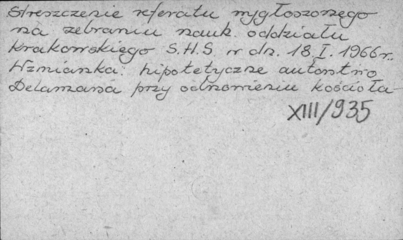 Streszczenie referatu wygłoszonego
na zebraniu nauk. oddziału
krakowskiego S.H.S w dn. 18.I.1966 r.
Wzmianka: hipotetyczne autorstwo
Delamarsa przy odnowieniu kościoła
XIII/935